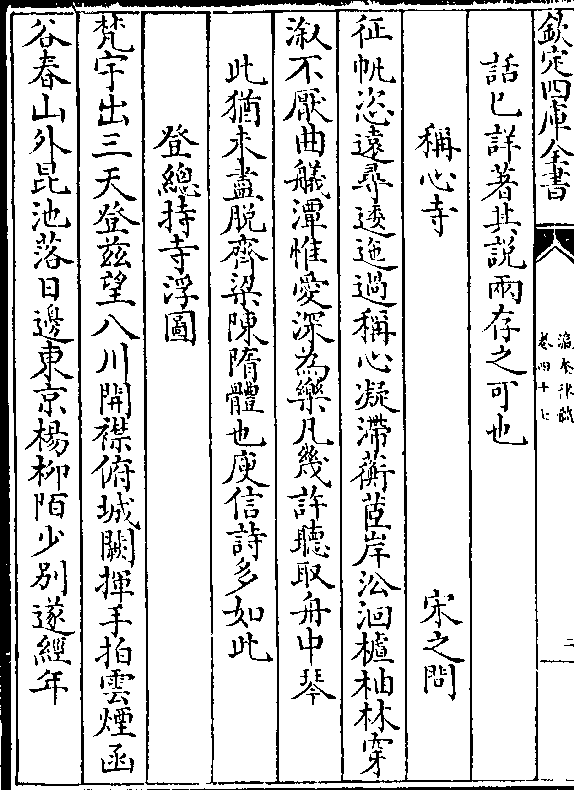 欽定四庫全書
瀛奎律髓
卷四十七
三
話已詳著其說兩存之可也
稱心寺
宋之問
征帆恣遠尋逶迤過稱心凝滯蘅茝岸沿洄櫨柚林穿
溆不厭曲艤潭惟愛深為樂凡幾許聽取舟中琴
此猶未盡脱齊梁陳隋體也庾信詩多如此
登總持寺浮圖
梵宇出三天登兹望八川開襟俯城闕揮手拍雲煙函
谷春山外昆池落日邊東京楊柳陌少别遂經年